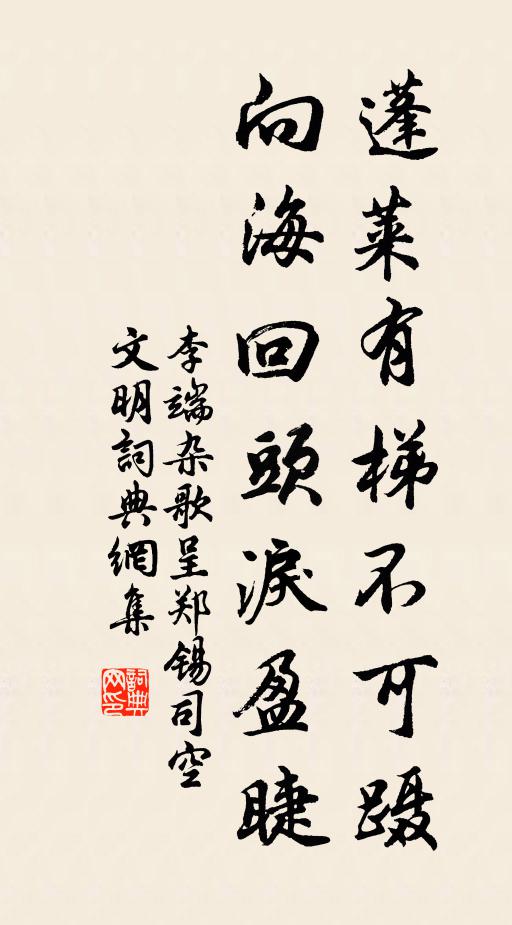 蓬莱有梯不可蹑
向海回頭淚盈睫
李端杂歌呈郑锡司空
文明詞典網集
詞典
网印